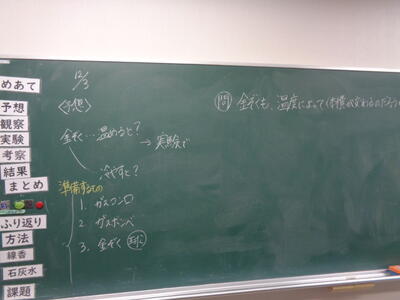 めあて
予想
観察
実験
考察
結果
まとめ
ふり返り
方法
線香
石灰水
課題
12/3
〈予想〉
金ぞく…温めると? → 実験で
冷やすと?
準備するもの
1. ガスコンロ
2. ガスボンベ
3. 金ぞく
問 金ぞくも、温度によって体積が変わるのだろうか